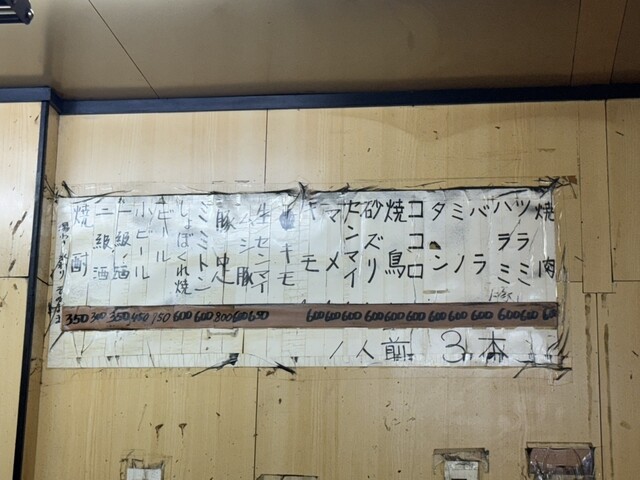 焼肉
ツラミ
ハラミ
バラ
ミノ
タン
ココロ
焼鳥
砂ズリ
センマイ
マメ
キモ
生キモ
生センマイ
ムシ豚
豚足
ミミトン
しょぼくれ焼
ビール
小ビール
一級酒
二級酒
焼酎
350 300 350 450 750 600 600 800 600 650 600 600 600 600 600 600 600 600 600 600
1人前 3本